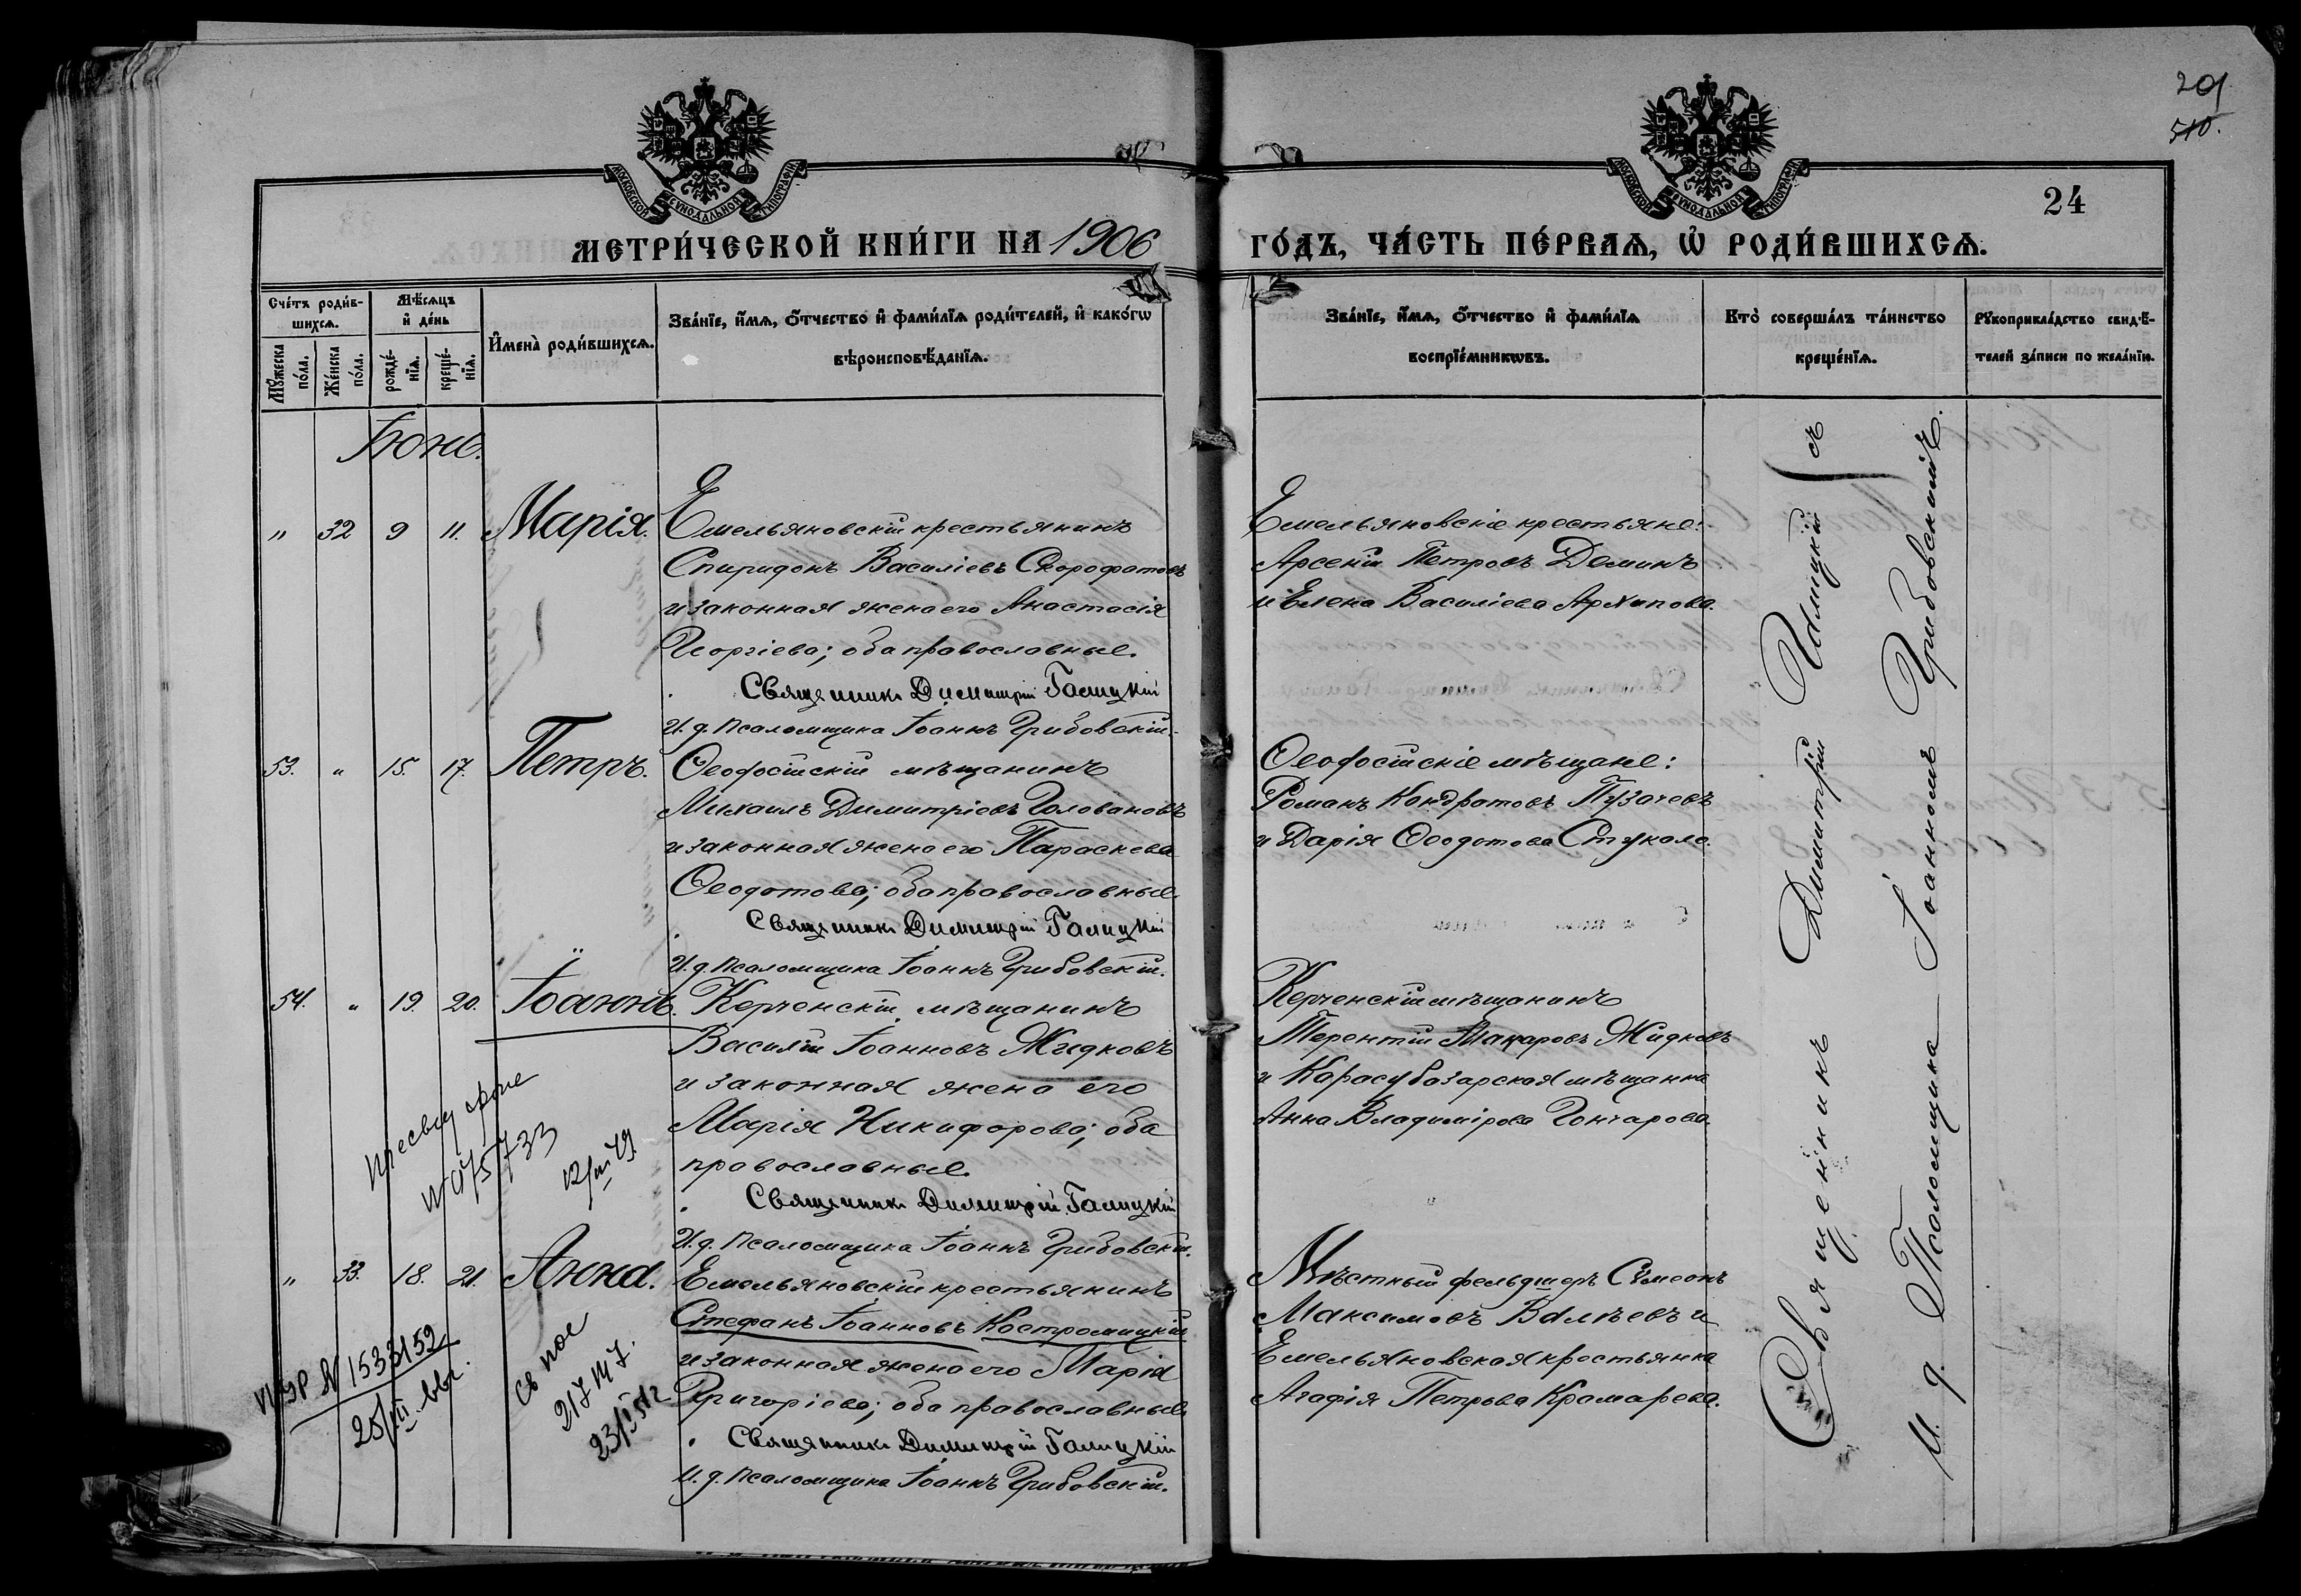 201
510.
МОСКОВСКОЙ СѴНОДАЛЬНОЙ ТИПОГРАФІИ
МОСКОВСКОЙ СѴНОДАЛЬНОЙ ТИПОГРАФІИ
24
МЕТРИ́ЧЕСКОЙ КНИ́ГИ НА 1906
ГО́ДЪ, ЧА́СТЬ ПЕ́РВАѦ, Ѡ҆ РОДИ́ВШИХСѦ.
Сче́тъ роди́в-
шихсѧ.
Мѣ́сѧцъ
и҆ де́нь
Мꙋ́жеска
по́ла.
Же́нска
по́ла.
рожде́-
нїѧ.
креще́-
нїѧ.
И҆мена̀ роди́вшихсѧ.
Зва́нїе, и҆́мѧ, ѻ҆́тчество и҆ фами́лїѧ роди́телей, и҆ како́гѡ
вѣроисповѣ́данїѧ.
Зва́нїе, и҆́мѧ, ѻ҆́тчество и҆ фами́лїѧ
воспрїе́мникѡвъ.
Кто̀ соверша́лъ та́инство
креще́нїѧ.
Рꙋкоприкла́дство свидѣ́-
телей за́писи по жела́нїю.
Іюнь.
" 32 9 11. Марія.
Емельяновскій крестьянинъ
Спиридонъ Василіевъ Скорофатовъ
и законная жена его Анастасія
Георгіева; оба православные.
Священникъ Димитрій Галицкій
И. д. псаломщика Іоаннъ Грибовскій.
Емельяновскіе крестьяне:
Арсеній Петровъ Деминъ
и Елена Василіева Архипова.
53. " 15. 17. Петръ.
Ѳеодосійскій мѣщанинъ
Михаилъ Димитріевъ Головановъ
и законная жена его Параскева
Ѳеодотова; оба православные.
Священникъ Димитрій Галицкій
И. д. псаломщика Іоаннъ Грибовскій.
Ѳеодосійскіе мѣщане:
Романъ Кондратовъ Пузачевъ
и Дарія Ѳеодотова Стукало.
54. " 19. 20. Іоаннъ.
Керченскій мѣщанинъ
Василій Іоанновъ Жидковъ
и законная жена его
Марія Никифорова; оба
православные.
Священникъ Димитрій Галицкій
И. д. псаломщика Іоаннъ Грибовскій.
Керченскій мѣщанинъ
Терентій Макаровъ Жидковъ
и Карасубазарская мѣщанка
Анна Владимірова Гончарова.
" 33. 18. 21. Анна.
Емельяновскій крестьянинъ
Стефанъ Іоанновъ Костромицкій
и законная жена его Марія
Григоріева; оба православные.
Священникъ Димитрій Галицкій
И. д. псаломщика Іоаннъ Грибовскій.
Мѣстный фельдшеръ Сѵмеонъ
Максимовъ Валѣевъ и
Емельяновская крестьянка
Агафія Петрова Крамарева.
Священникъ Димитрій Галицкій съ
И. д. Псаломщика Іоанномъ Грибовскимъ.
№ 1533152
23/I 51г